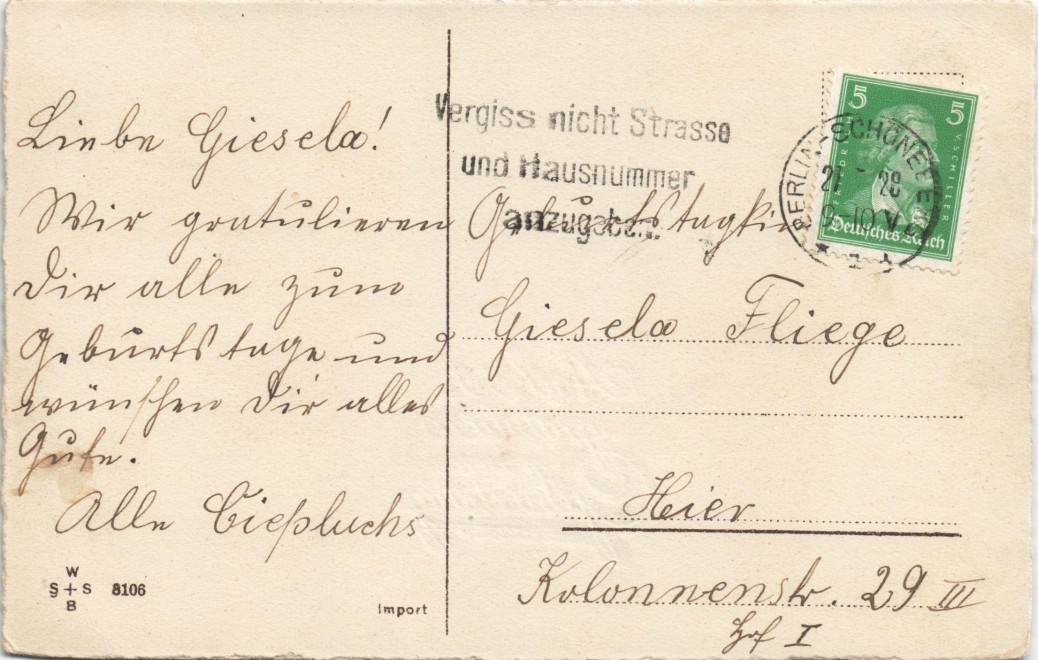 Liebe Giesela!
Wir gratulieren
Dir alle zum
Geburtstage und
wünschen Dir alles
Gute.
Alle Cießluchs
W
S + S 8106
B
Import
Vergiss nicht Strasse
und Hausnummer
anzugeben.
BERLIN-SCHÖNEBE
21 28
9-10 V
* 1
5 5
V. SCHILLER
Deutsches Reich
Geburtstagkin
Giesela Fliege
Hier
Kolonnenstr. 29 III
Hof I